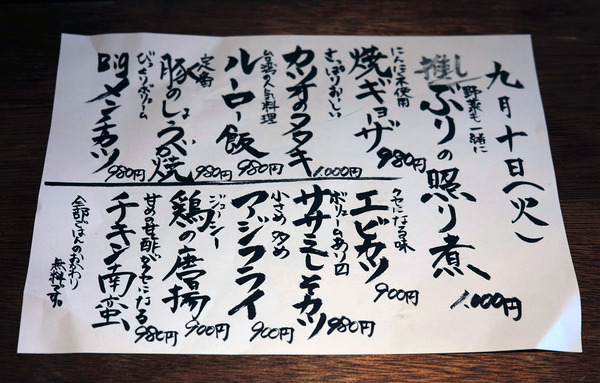 九月十日(火)
推し
野菜も一緒に
ぶりの照り煮
1000円
にんにく不使用
焼ギョーザ
980円
さっぱりおいしい
カツオのタタキ
1000円
台湾の人気料理
ルーロー飯
980円
定番
豚のしょうが焼
980円
びっくりボリューム
Bigメンチカツ
980円
クセになる味
エビカツ
900円
ボリュームあり
ササミチーズカツ
980円
小さめ
アジフライ
900円
ジューシー
鶏の唐揚
900円
甘めの甘酢がクセになる
チキン南蛮
980円
全部ごはんのおかわり
無料です。